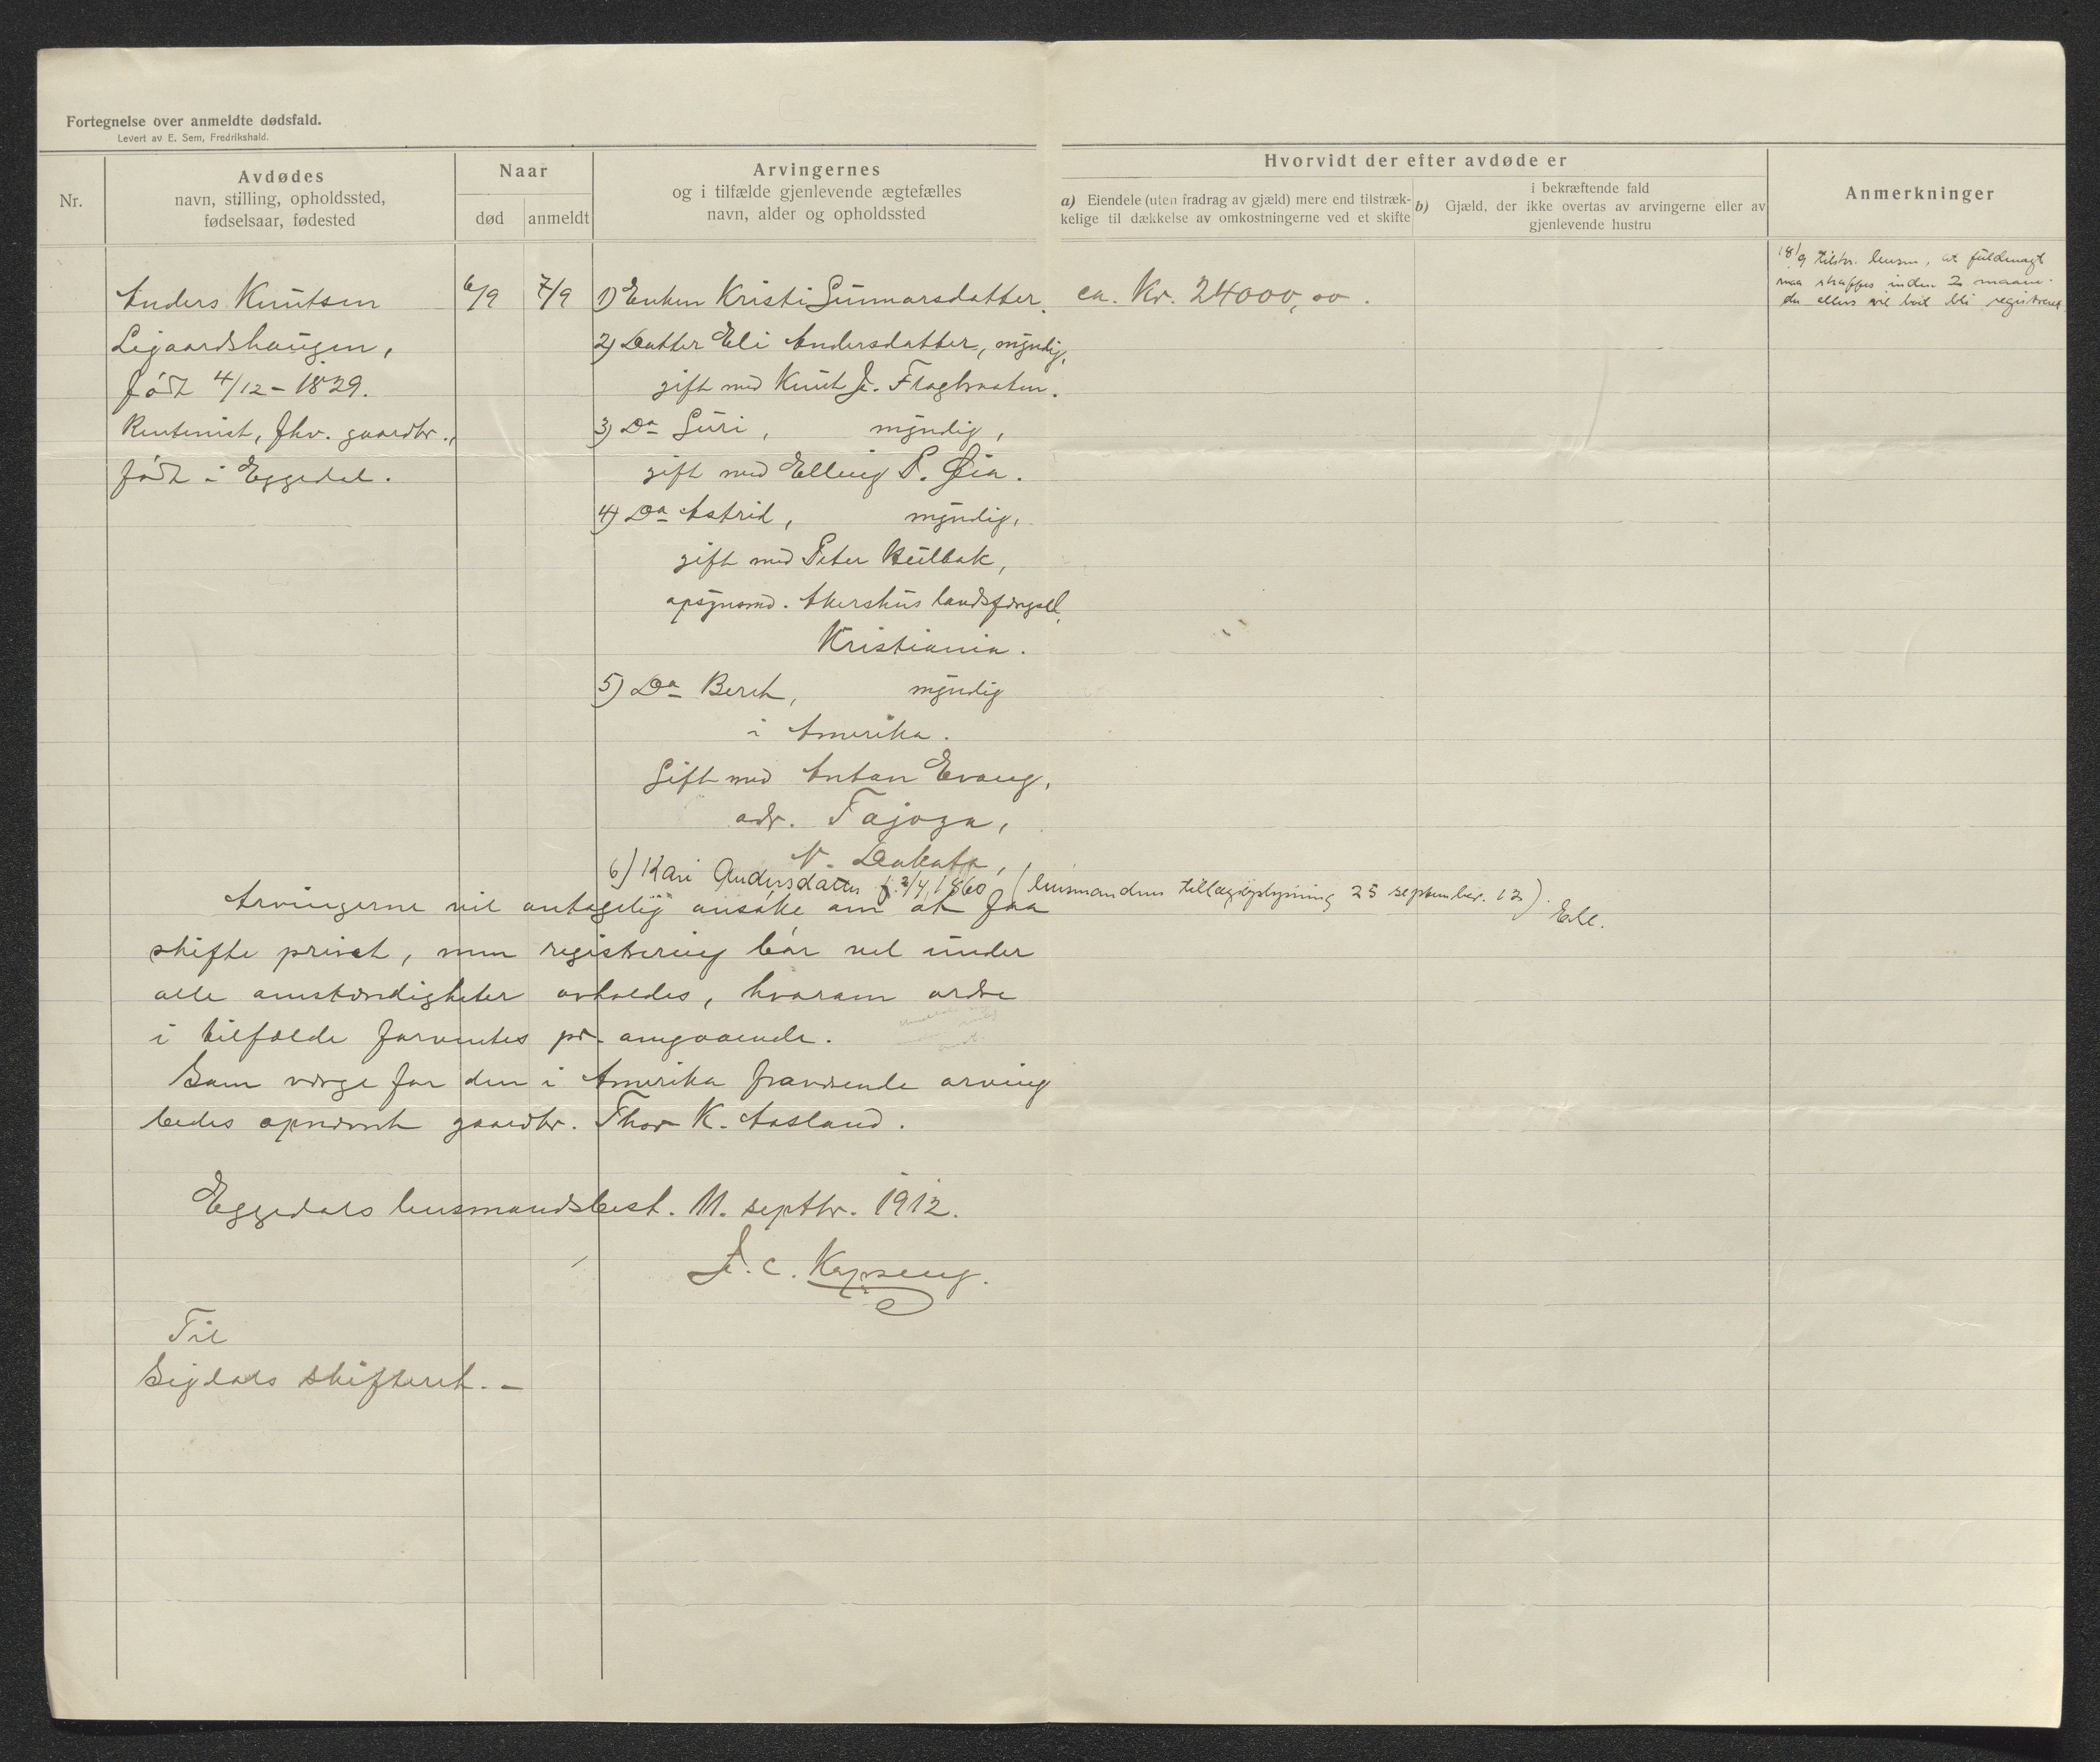 Fortegnelse over anmeldte dødsfald.
Levert av E. Sem, Fredrikshald.
Nr.
Avdødes
navn, stilling, opholdssted,
fødselsaar, fødested
Naar
død
anmeldt
Arvingernes
og i tilfælde gjenlevende ægtefælles
navn, alder og opholdssted
Hvorvidt der efter avdøde er
a) Eiendele (uten fradrag av gjæld) mere end tilstræk-
kelige til dækkelse av omkostningerne ved et skifte
i bekræftende fald
b) Gjæld, der ikke overtas av arvingerne eller av
gjenlevende hustru
Anmerkninger
Anders Knutsen
Ligaardshaugen,
født 4/12 - 1829.
Rentenist, fhv. gaardbr.,
født i Eggedal.
6/9
7/9
1) Enken Kristi Gunnarsdatter.
2) Datter Eli Andersdatter, myndig,
gift med Knut J. Flagbraaten.
3) Da Guri, myndig,
gift med Elling P. Øia.
4) Da Astrid, myndig,
gift med Peter Hulbak,
opsynsmd. Akershus landsfængsel,
Kristiania.
5) Da Beret, myndig
i Amerika.
Gift med Anton Evang,
adr. Tajoga,
N. Dakota,
6) Kari Andersdatter f. 2/4, 1860 (lensmandens tillægsoplysning 25 september. 12).
ca. Kr. 24000,00.
18/9 tilskr. lensm, at fuldmagt
maa skaffes inden 2 maane-
der ellers vil boet bli registreret
Arvingerne vil antagelig ansøke om at faa
skifte privat, men registrering bør vel under
alle omstændigheter avholdes, hvorom ordre
i tilfælde forventes pr. omgaaende.
Som værge for den i Amerika fraværende arving
bedes opnævnt gaardbr. Thor K. Aasland.
Eggedals lensmandsbest. 11. septbr. 1912.
J. C. Kopseng.
Til
Sigdals skifteret. -